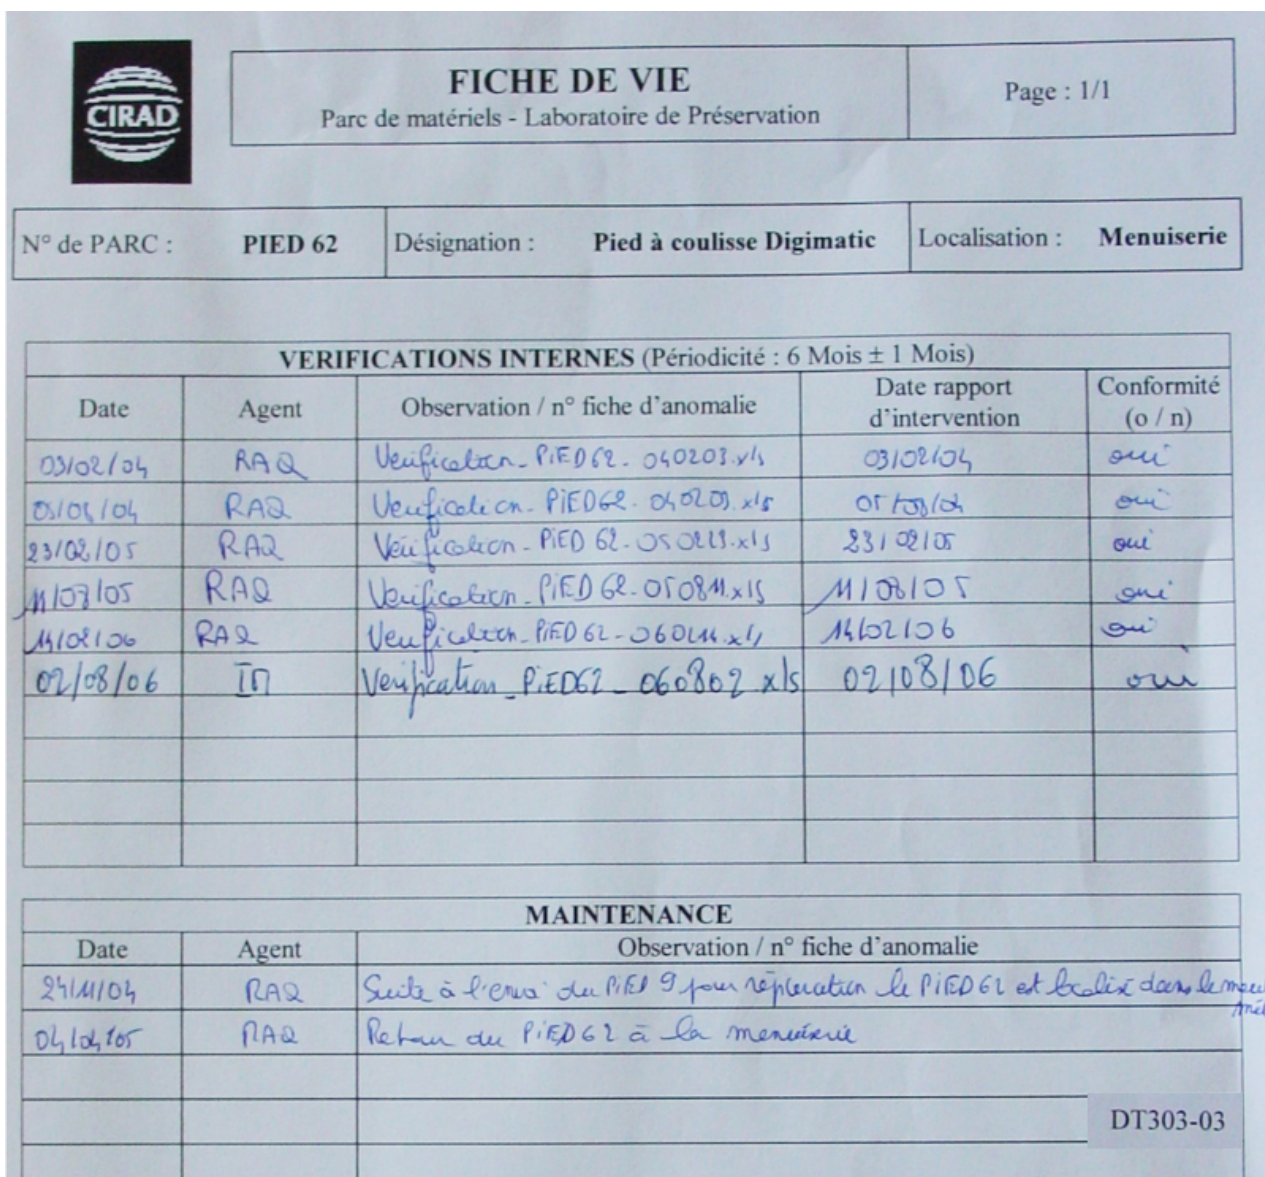 CIRAD
FICHE DE VIE
Parc de matériels - Laboratoire de Préservation
Page : 1/1
N° de PARC : PIED 62 Désignation : Pied à coulisse Digimatic Localisation : Menuiserie
VERIFICATIONS INTERNES (Périodicité : 6 Mois ± 1 Mois)
Date Agent Observation / n° fiche d'anomalie Date rapport d'intervention Conformité (o / n)
03/02/04 RAQ Verification_PiED62_040203.xls 03/02/04 oui
RAQ Verification_PiED62_040203.xls oui
23/02/05 RAQ Verification_PiED 62_050223.xls 23/02/05 oui
11/08/05 RAQ Verification_PiED 62_050811.xls 11/08/05 oui
14/02/06 RAQ Verification_PiED 62_060214.xls 14/02/06 oui
02/08/06 Verification_PiED62_060802 xls 02/08/06 oui
MAINTENANCE
Date Agent Observation / n° fiche d'anomalie
24/11/04 RAQ Suite à l'envoi du PiED 9 pour réparation le PiED 62 est localisé dans le
04/04/05 RAQ Retour du PiED62 à la menuiserie
DT303-03